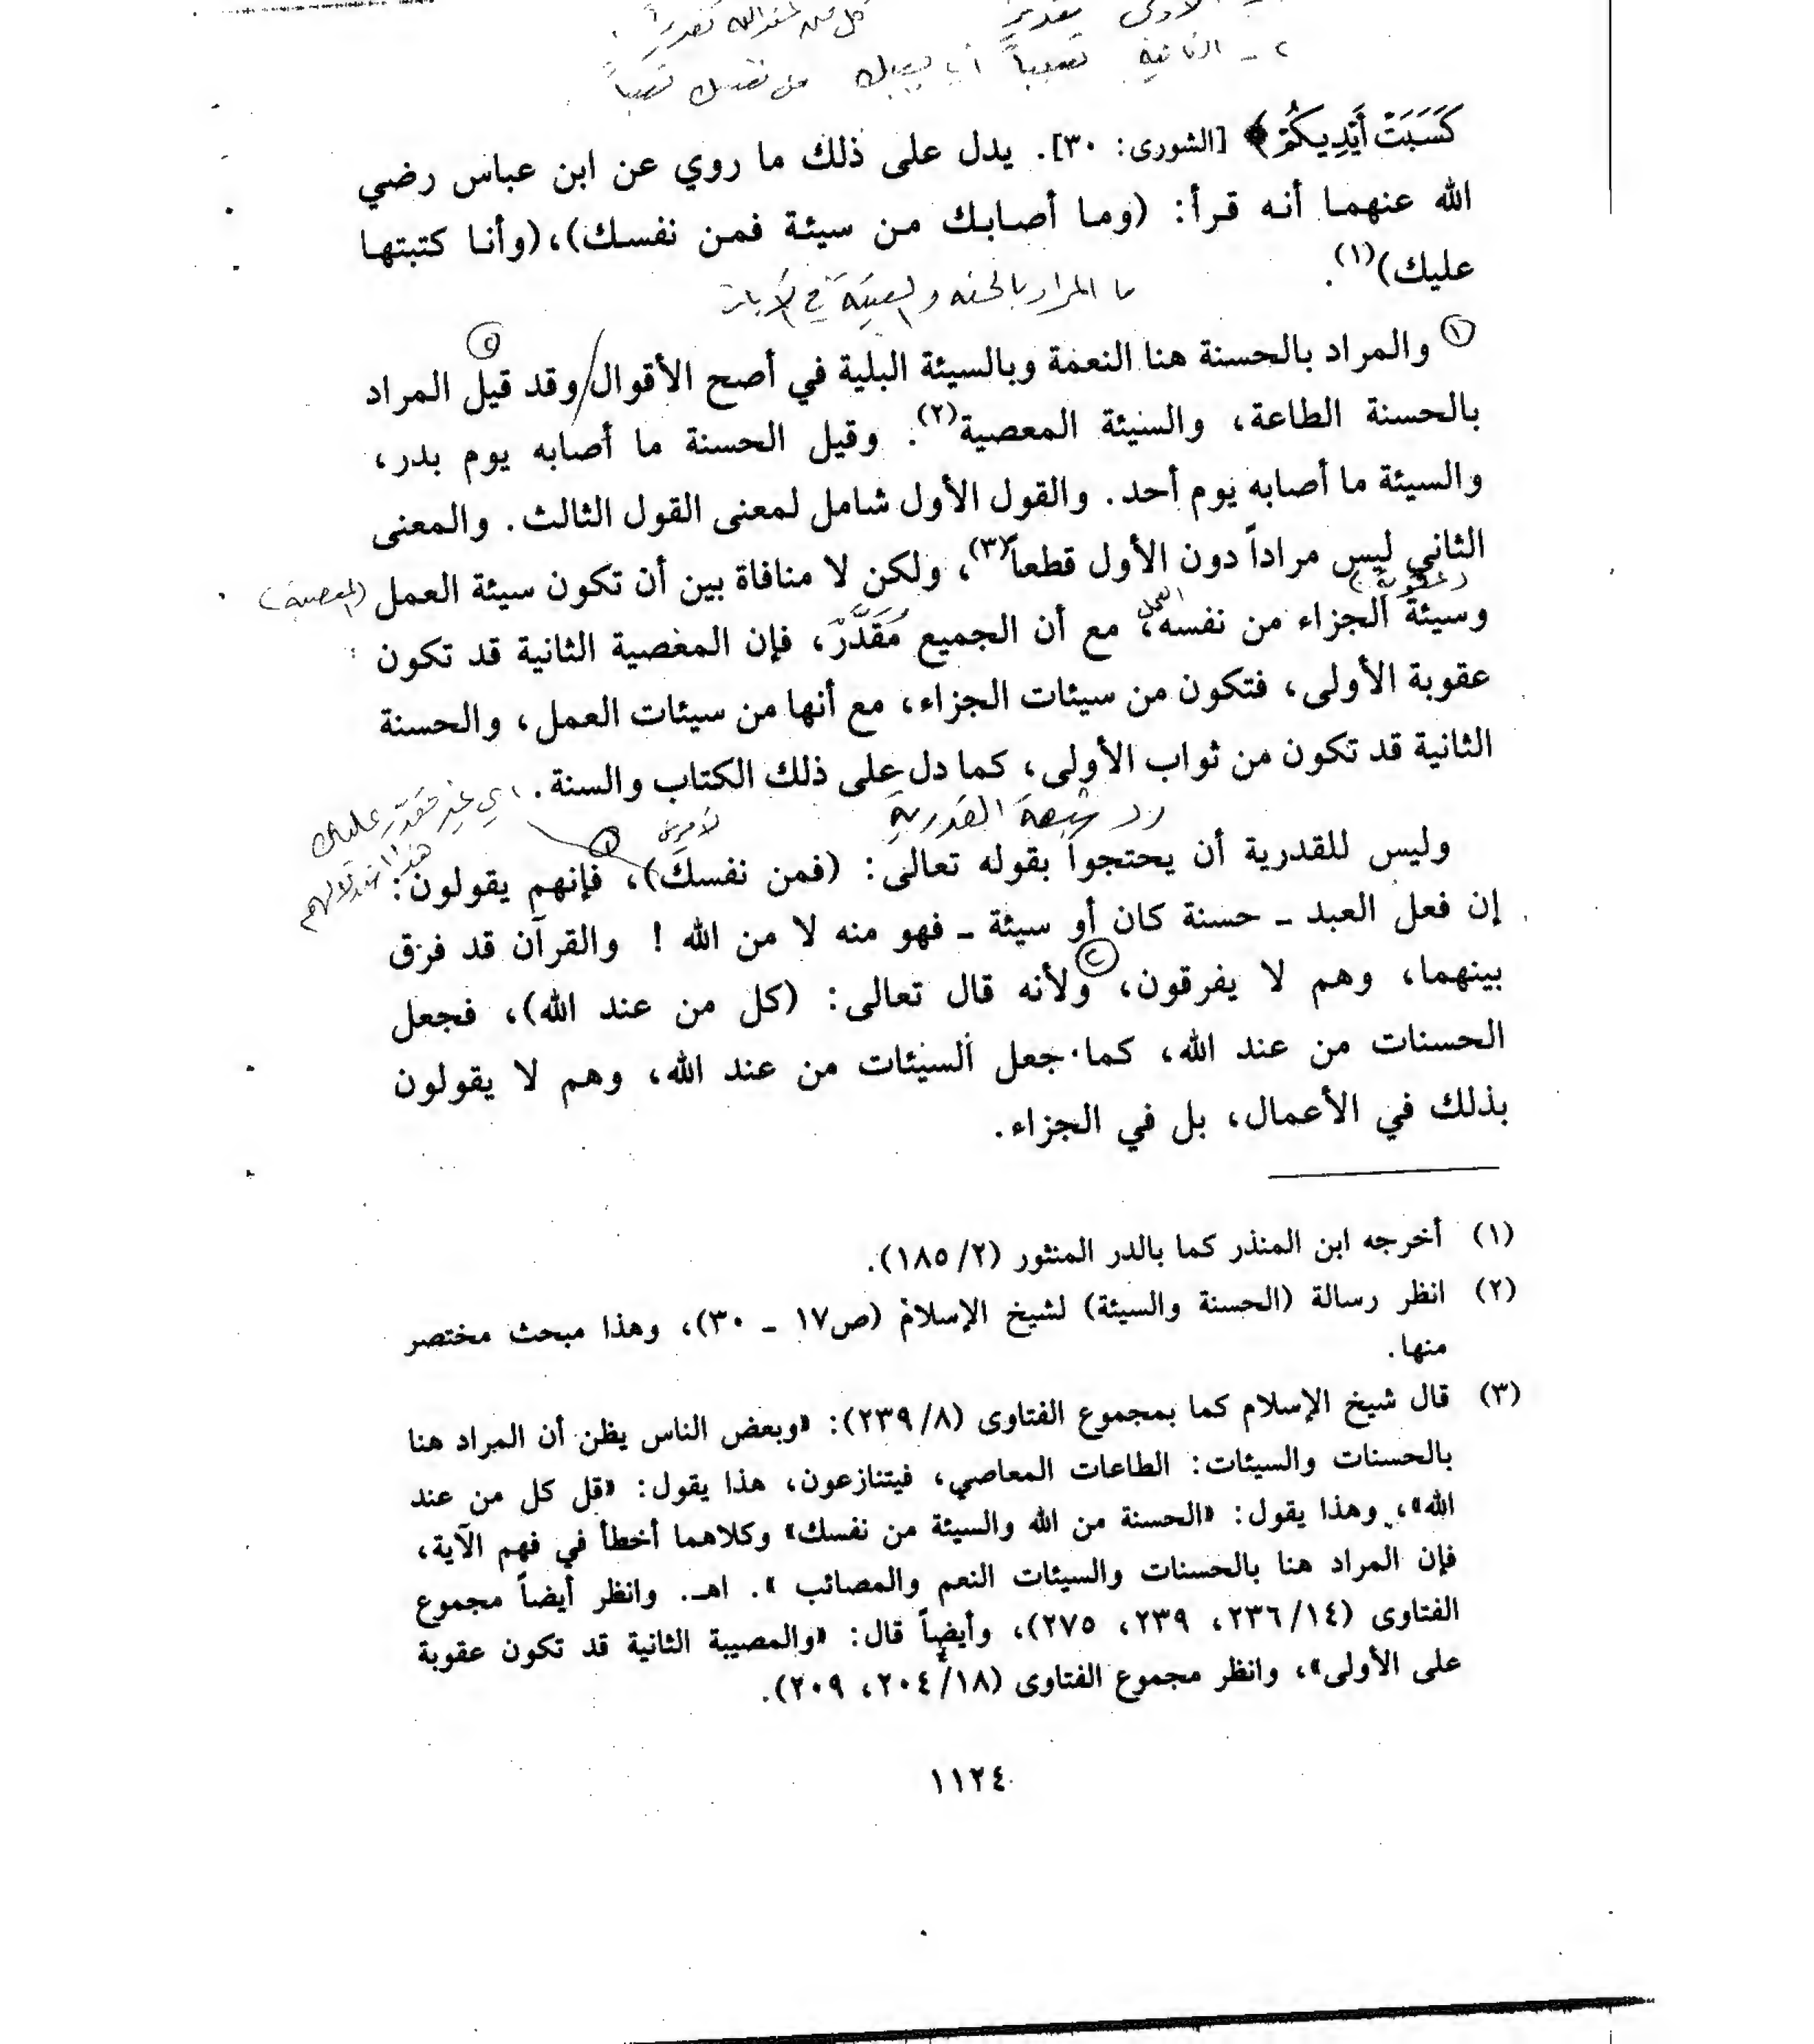 ٢ - الثانية تسبباً أي بسببك من نفسك تسبباً
كَسَبَتْ أَيْدِيكُمْ﴾ [الشورى: ٣٠]. يدل على ذلك ما روي عن ابن عباس رضي
الله عنهما أنه قرأ: (وما أصابك من سيئة فمن نفسك)، (وأنا كتبتها
عليك)(١).
ما المراد بالحسنة والسيئة في الآيات
① والمراد بالحسنة هنا النعمة وبالسيئة البلية في أصح الأقوال/ وقد قيل المراد
بالحسنة الطاعة، والسيئة المعصية(٢). وقيل الحسنة ما أصابه يوم بدر،
والسيئة ما أصابه يوم أحد. والقول الأول شامل لمعنى القول الثالث. والمعنى
الثاني ليس مراداً دون الأول قطعاً(٣)، ولكن لا منافاة بين أن تكون سيئة العمل (المعصية)
(عقوبة) العمل
وسيئة الجزاء من نفسه، مع أن الجميع مُقَدَّرٌ، فإن المعصية الثانية قد تكون
عقوبة الأولى، فتكون من سيئات الجزاء، مع أنها من سيئات العمل، والحسنة
الثانية قد تكون من ثواب الأولى، كما دل على ذلك الكتاب والسنة.
أي غير مقدر عليك
هذا استدلالهم
رد شبهة القدرية
وليس للقدرية أن يحتجوا بقوله تعالى: (فمن نفسكَ)، فإنهم يقولون:
إن فعل العبد - حسنة كان أو سيئة - فهو منه لا من الله ! والقرآن قد فرق
بينهما، وهم لا يفرقون، ولأنه قال تعالى: (كل من عند الله)، فجعل
الحسنات من عند الله، كما جعل السيئات من عند الله، وهم لا يقولون
بذلك في الأعمال، بل في الجزاء.
(١) أخرجه ابن المنذر كما بالدر المنثور (١٨٥/٢).
(٢) انظر رسالة (الحسنة والسيئة) لشيخ الإسلام (ص١٧ - ٣٠)، وهذا مبحث مختصر
منها.
(٣) قال شيخ الإسلام كما بمجموع الفتاوى (٢٣٩/٨): «وبعض الناس يظن أن المراد هنا
بالحسنات والسيئات: الطاعات المعاصي، فيتنازعون، هذا يقول: «قل كل من عند
الله»، وهذا يقول: «الحسنة من الله والسيئة من نفسك» وكلاهما أخطأ في فهم الآية،
فإن المراد هنا بالحسنات والسيئات النعم والمصائب ». اهـ. وانظر أيضاً مجموع
الفتاوى (٢٣٦/١٤، ٢٣٩، ٢٧٥)، وأيضاً قال: «والمصيبة الثانية قد تكون عقوبة
على الأولى»، وانظر مجموع الفتاوى (٢٠٤/١٨، ٢٠٩).
١١٢٤